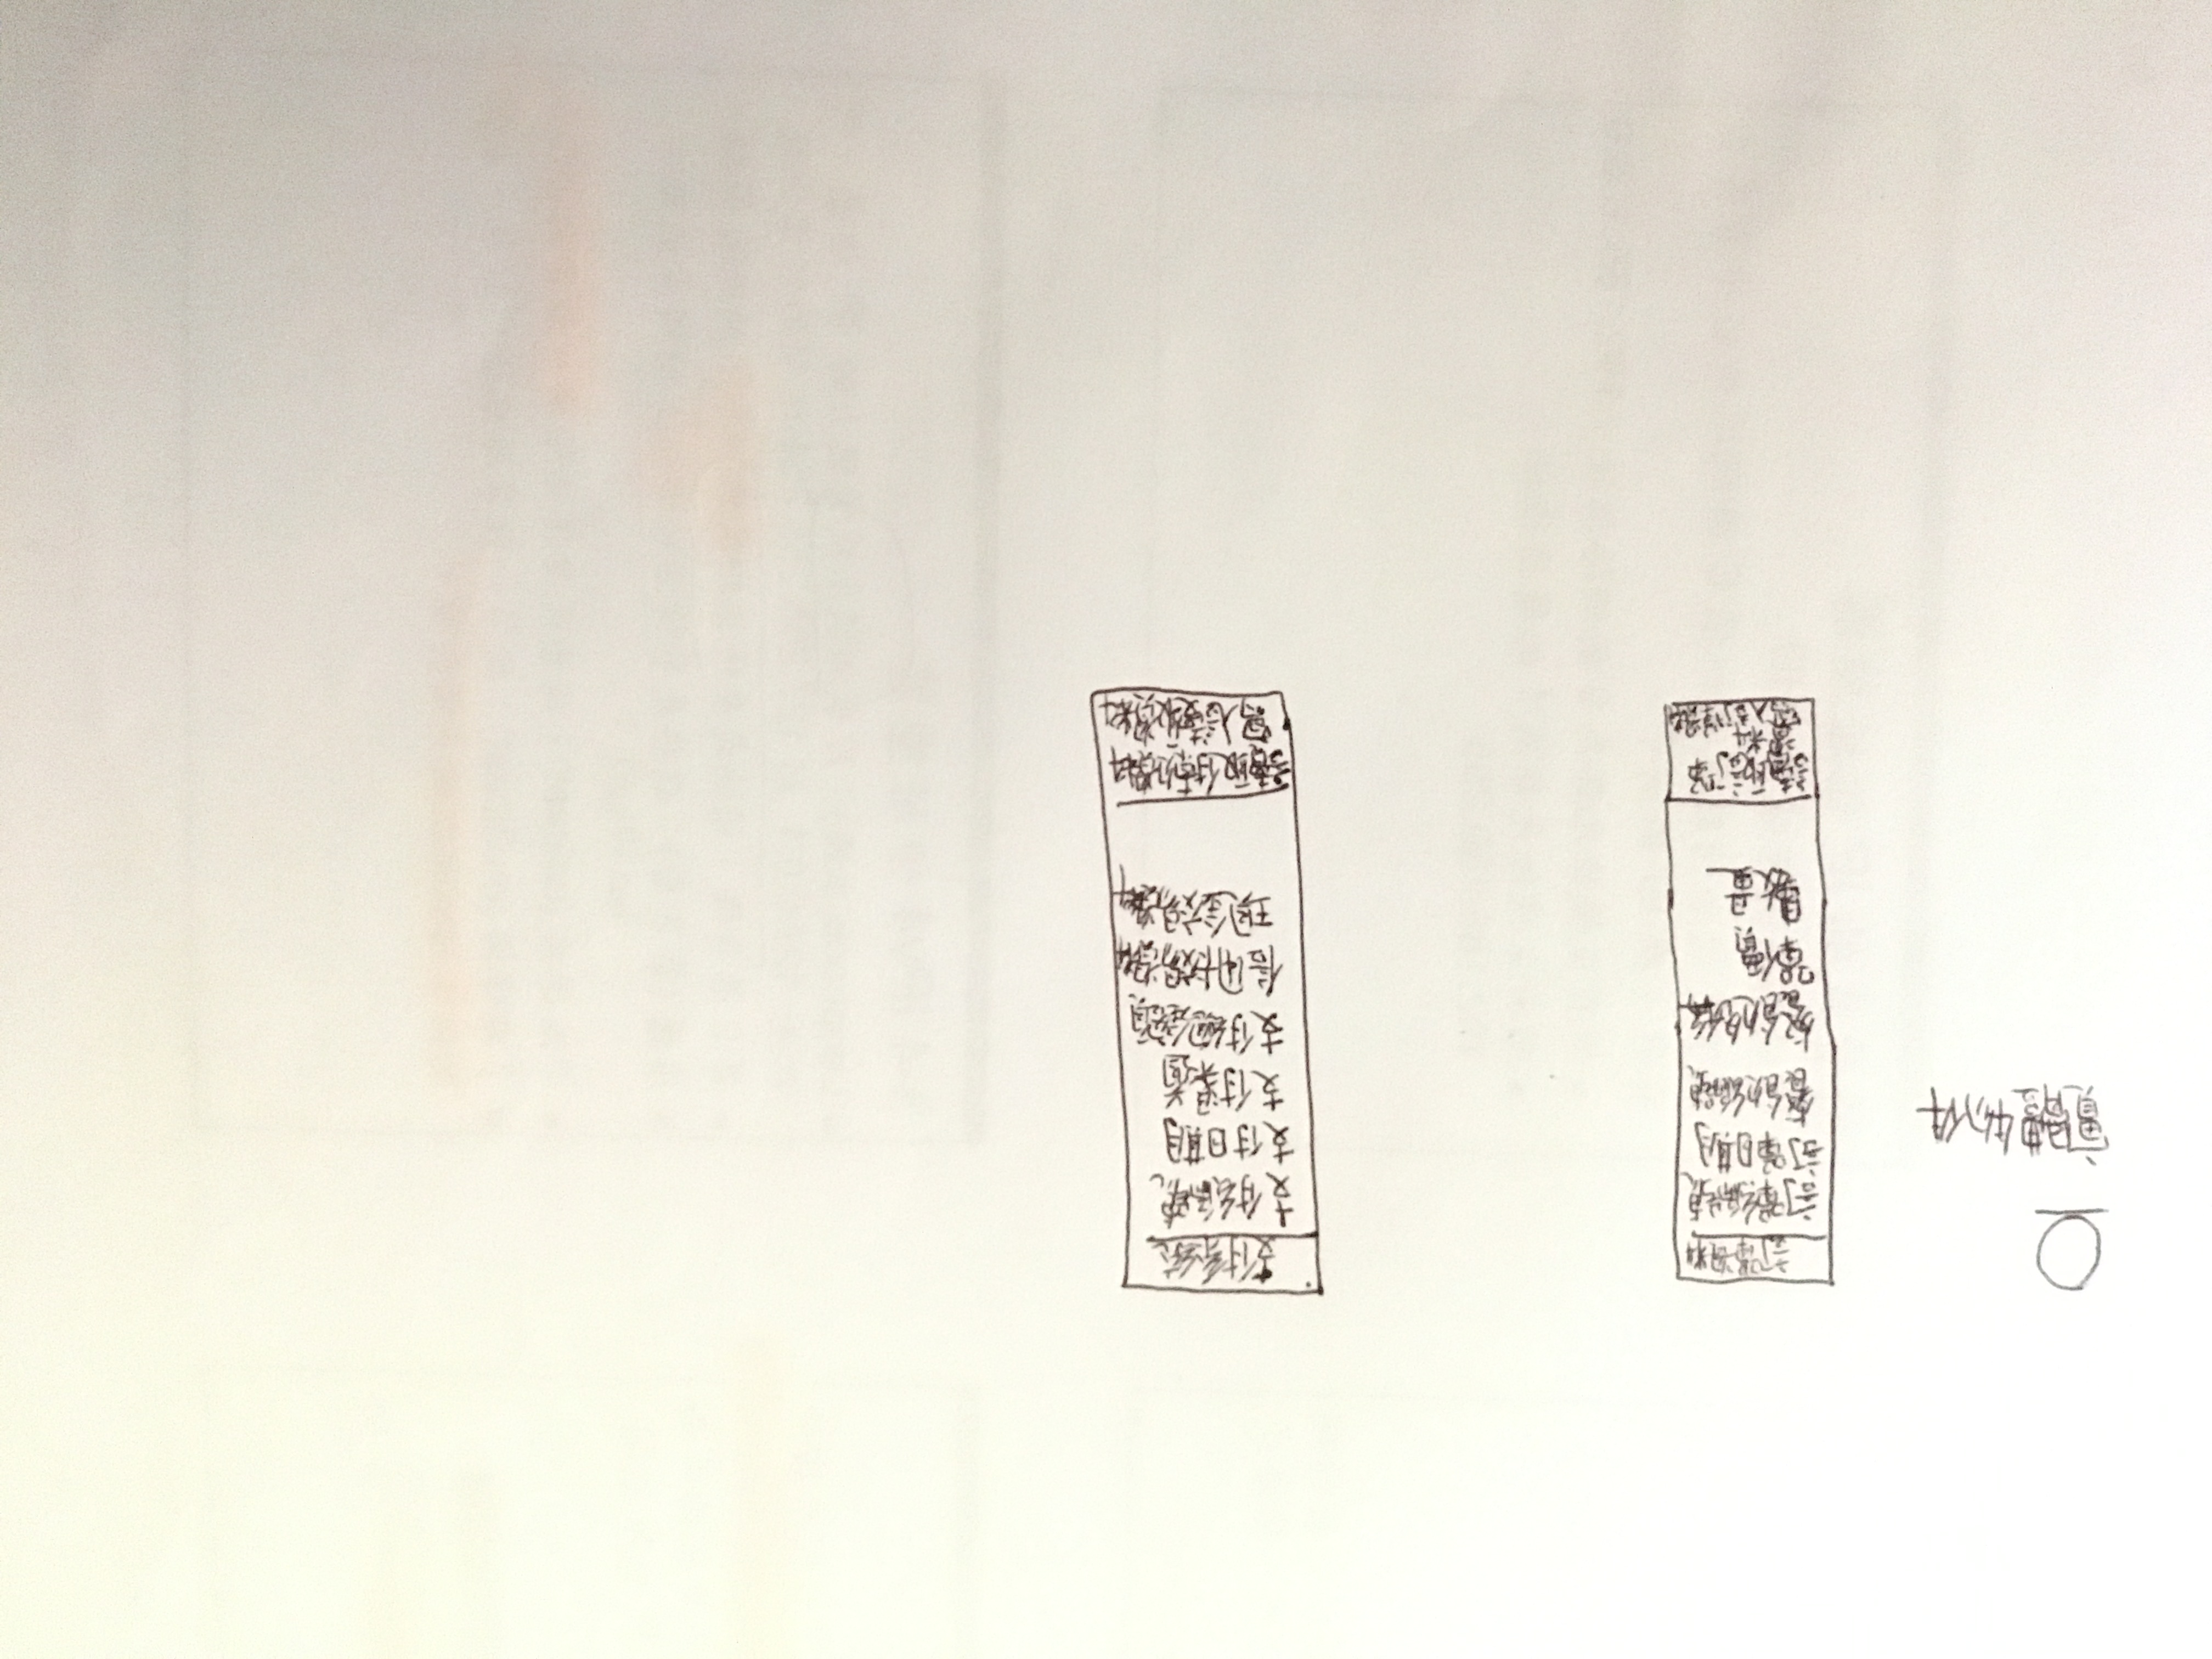 實體物件
訂單資料
訂單編號
訂單日期
餐飲編號
餐飲名稱
單價
數量
讀取訂單
資料
寫入訂單資料
支付系統
支付編號
支付日期
支付渠道
支付總金額
信用卡交易資料
現金交易資料
讀取付款資料
寫入讀取資料